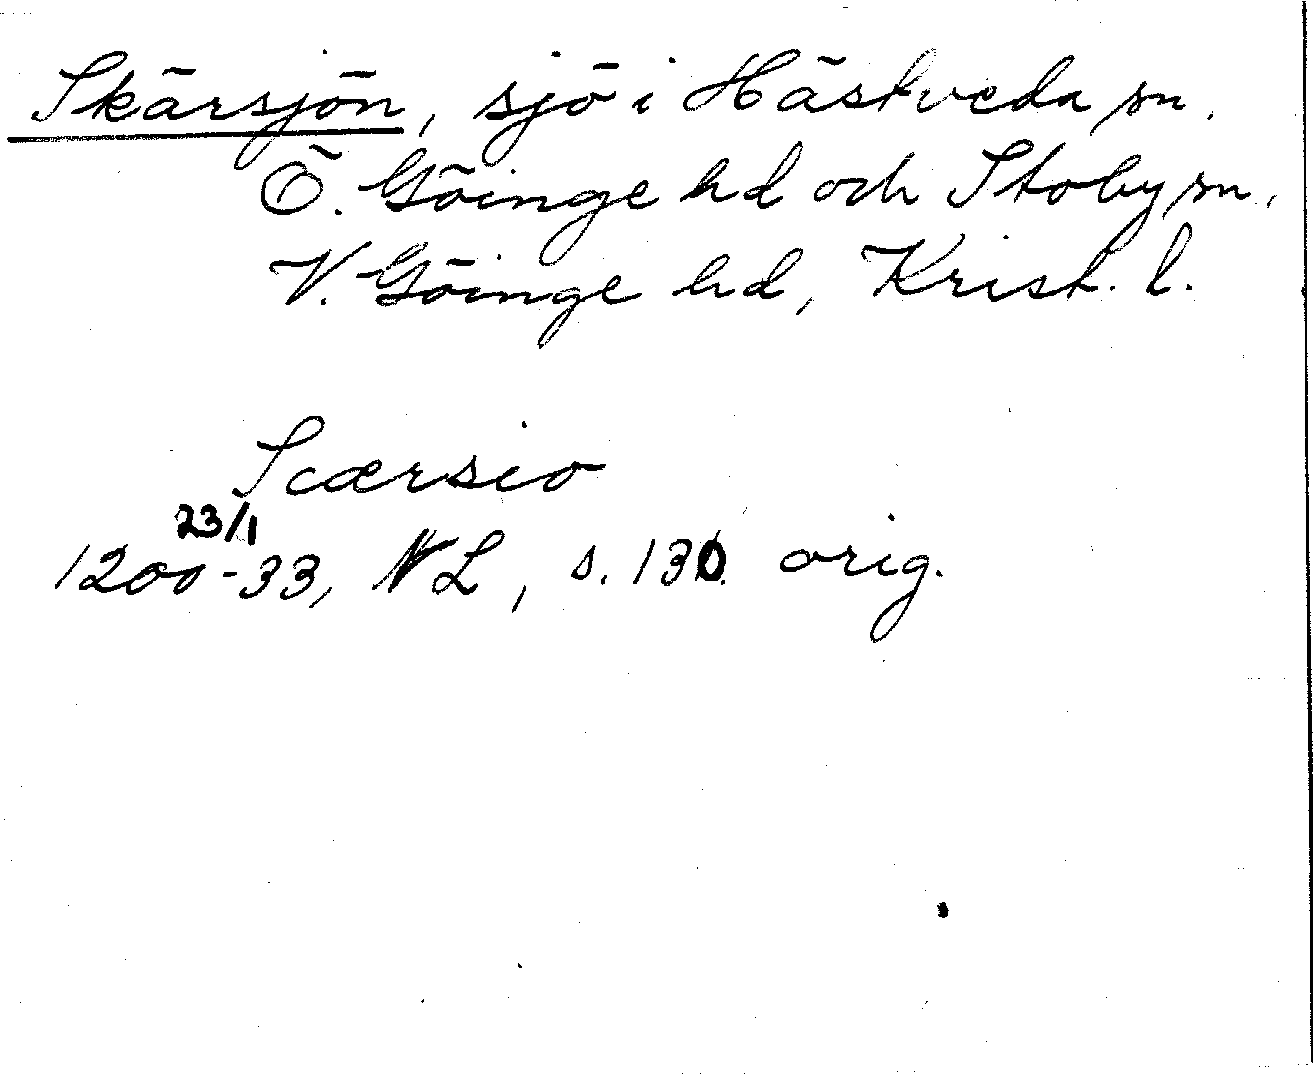 Skärsjön, sjö i Hästveda sn.
Ö. Göinge hd och Stoby sn.
V. Göinge hd, Krist. l.
Scærsio
23/1
1200-33, NL, s. 130. orig.